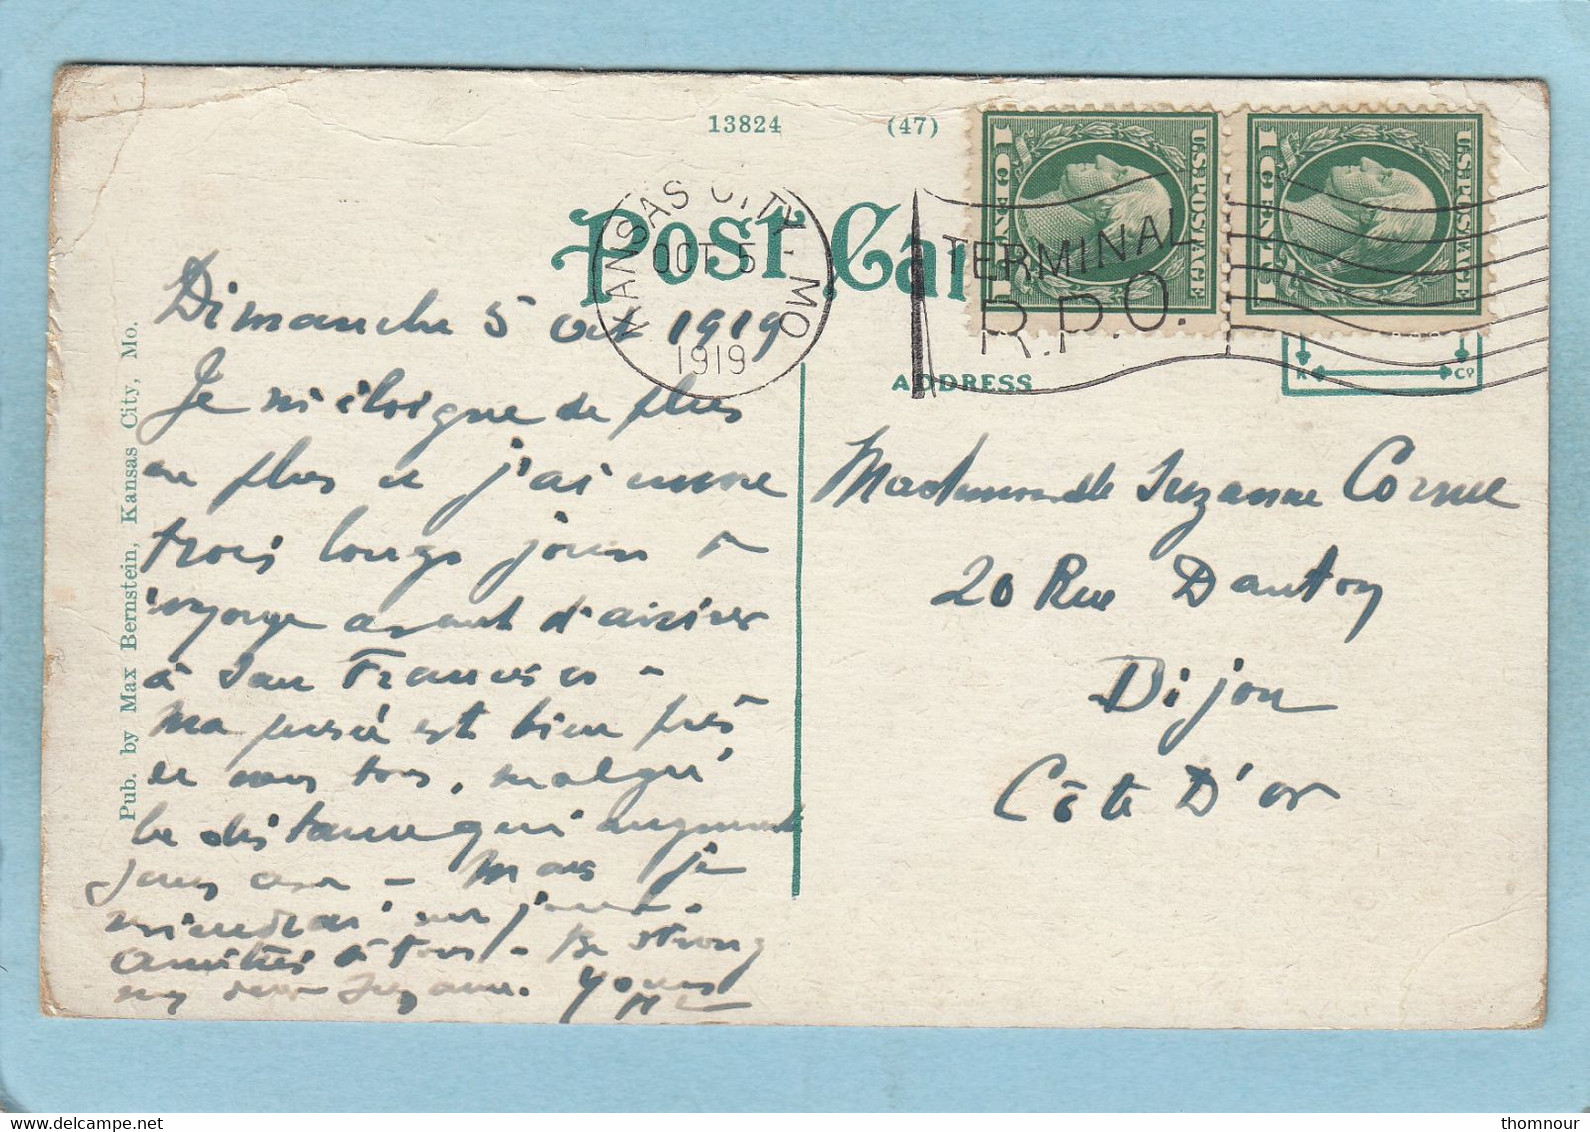 13824 (47)
Post Car
KANSAS CITY, MO.
OCT 5
1919
TERMINAL
R.P.O.
1 CENT 1
U.S. POSTAGE
1 CENT 1
U.S. POSTAGE
ADDRESS
K Co
Pub. by Max Bernstein, Kansas City, Mo.
Dimanche 5 oct 1919
Je m'éloigne de plus
en plus et j'ai encore
trois longs jours de
voyage avant d'arriver
à San Francisco -
Ma pensée est bien près
de vous tous, malgré
la distance qui augmente
- Mais je
viendrai un jour.
Amitiés à tous - Be strong
my dear Suzanne. Yours
Mademoiselle Suzanne Cornue
20 Rue Danton
Dijon
Côte D'or
thomnour